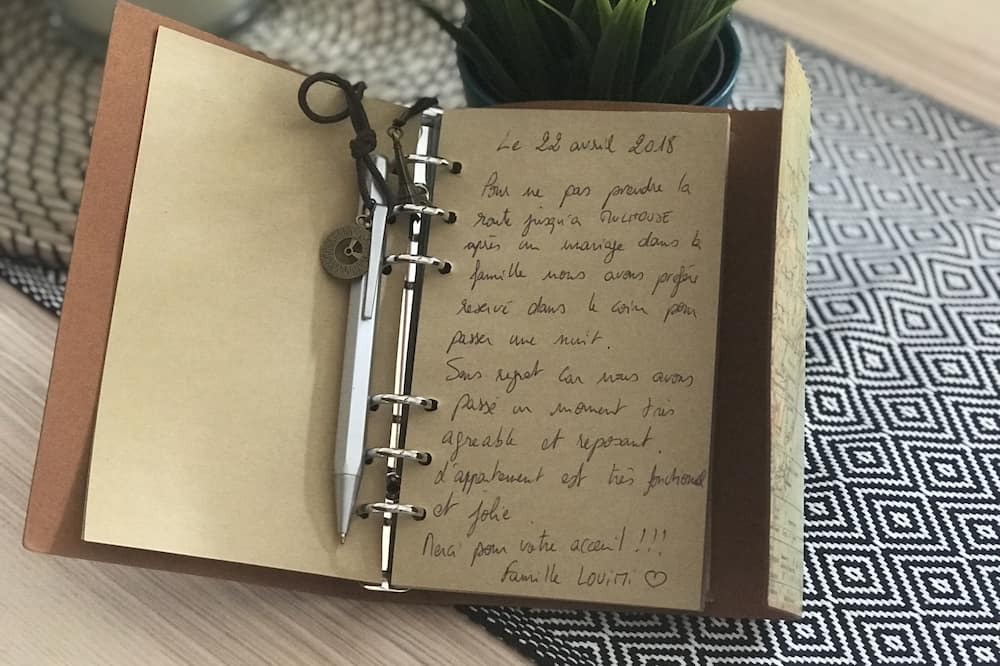 Le 22 avril 2018
Pour ne pas prendre la
route jusqu'a MULHOUSE
après un mariage dans la
famille nous avons préféré
reservé dans le coin pour
passer une nuit.
Sans regret car nous avons
passé un moment très
agreable et reposant.
L'appartement est très fonctionnel
et jolie
Merci pour votre acceuil !!!
Famille LOUIMI ♡